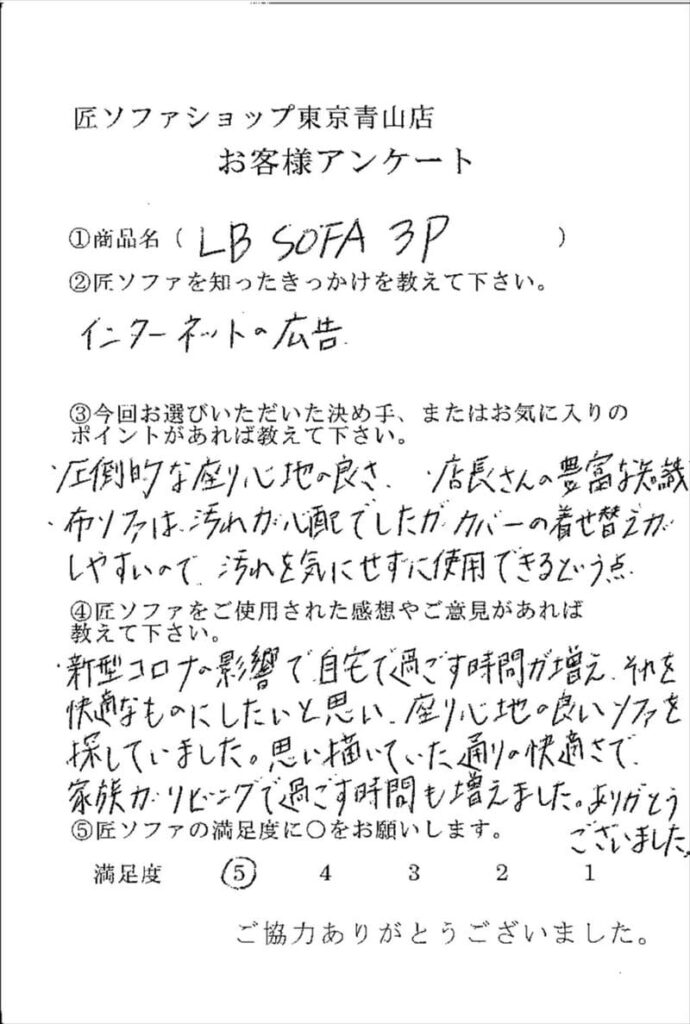 匠ソファショップ東京青山店
お客様アンケート
①商品名（ LB SOFA 3P ）
②匠ソファを知ったきっかけを教えて下さい。
インターネットの広告.
③今回お選びいただいた決め手、またはお気に入りの
ポイントがあれば教えて下さい。
・圧倒的な座り心地の良さ. ・店長さんの豊富な知識
・布ソファは、汚れが心配でしたが、カバーの着せ替えが
しやすいので、汚れを気にせずに使用できるという点.
④匠ソファをご使用された感想やご意見があれば
教えて下さい。
・新型コロナの影響で、自宅で過ごす時間が増え、それを
快適なものにしたいと思い、座り心地の良いソファを
探していました。思い描いていた通りの快適さで、
家族がリビングで過ごす時間も増えました。ありがとう
ございました。
⑤匠ソファの満足度に○をお願いします。
満足度 ⑤ 4 3 2 1
ご協力ありがとうございました。